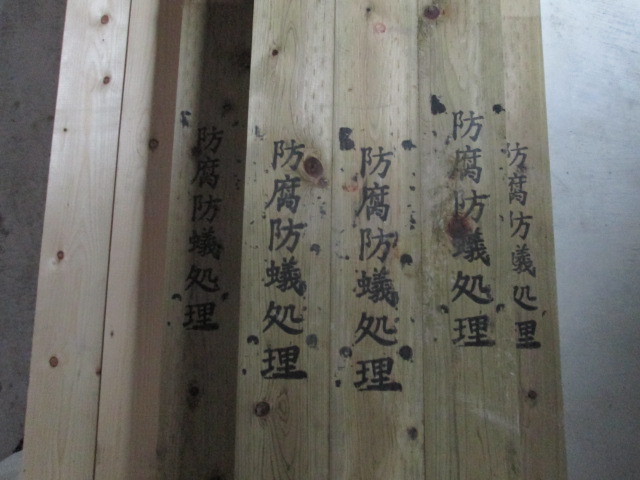 防腐防蟻処理
防腐防蟻処理
防腐防蟻処理
防腐防蟻処理
防腐防蟻処理